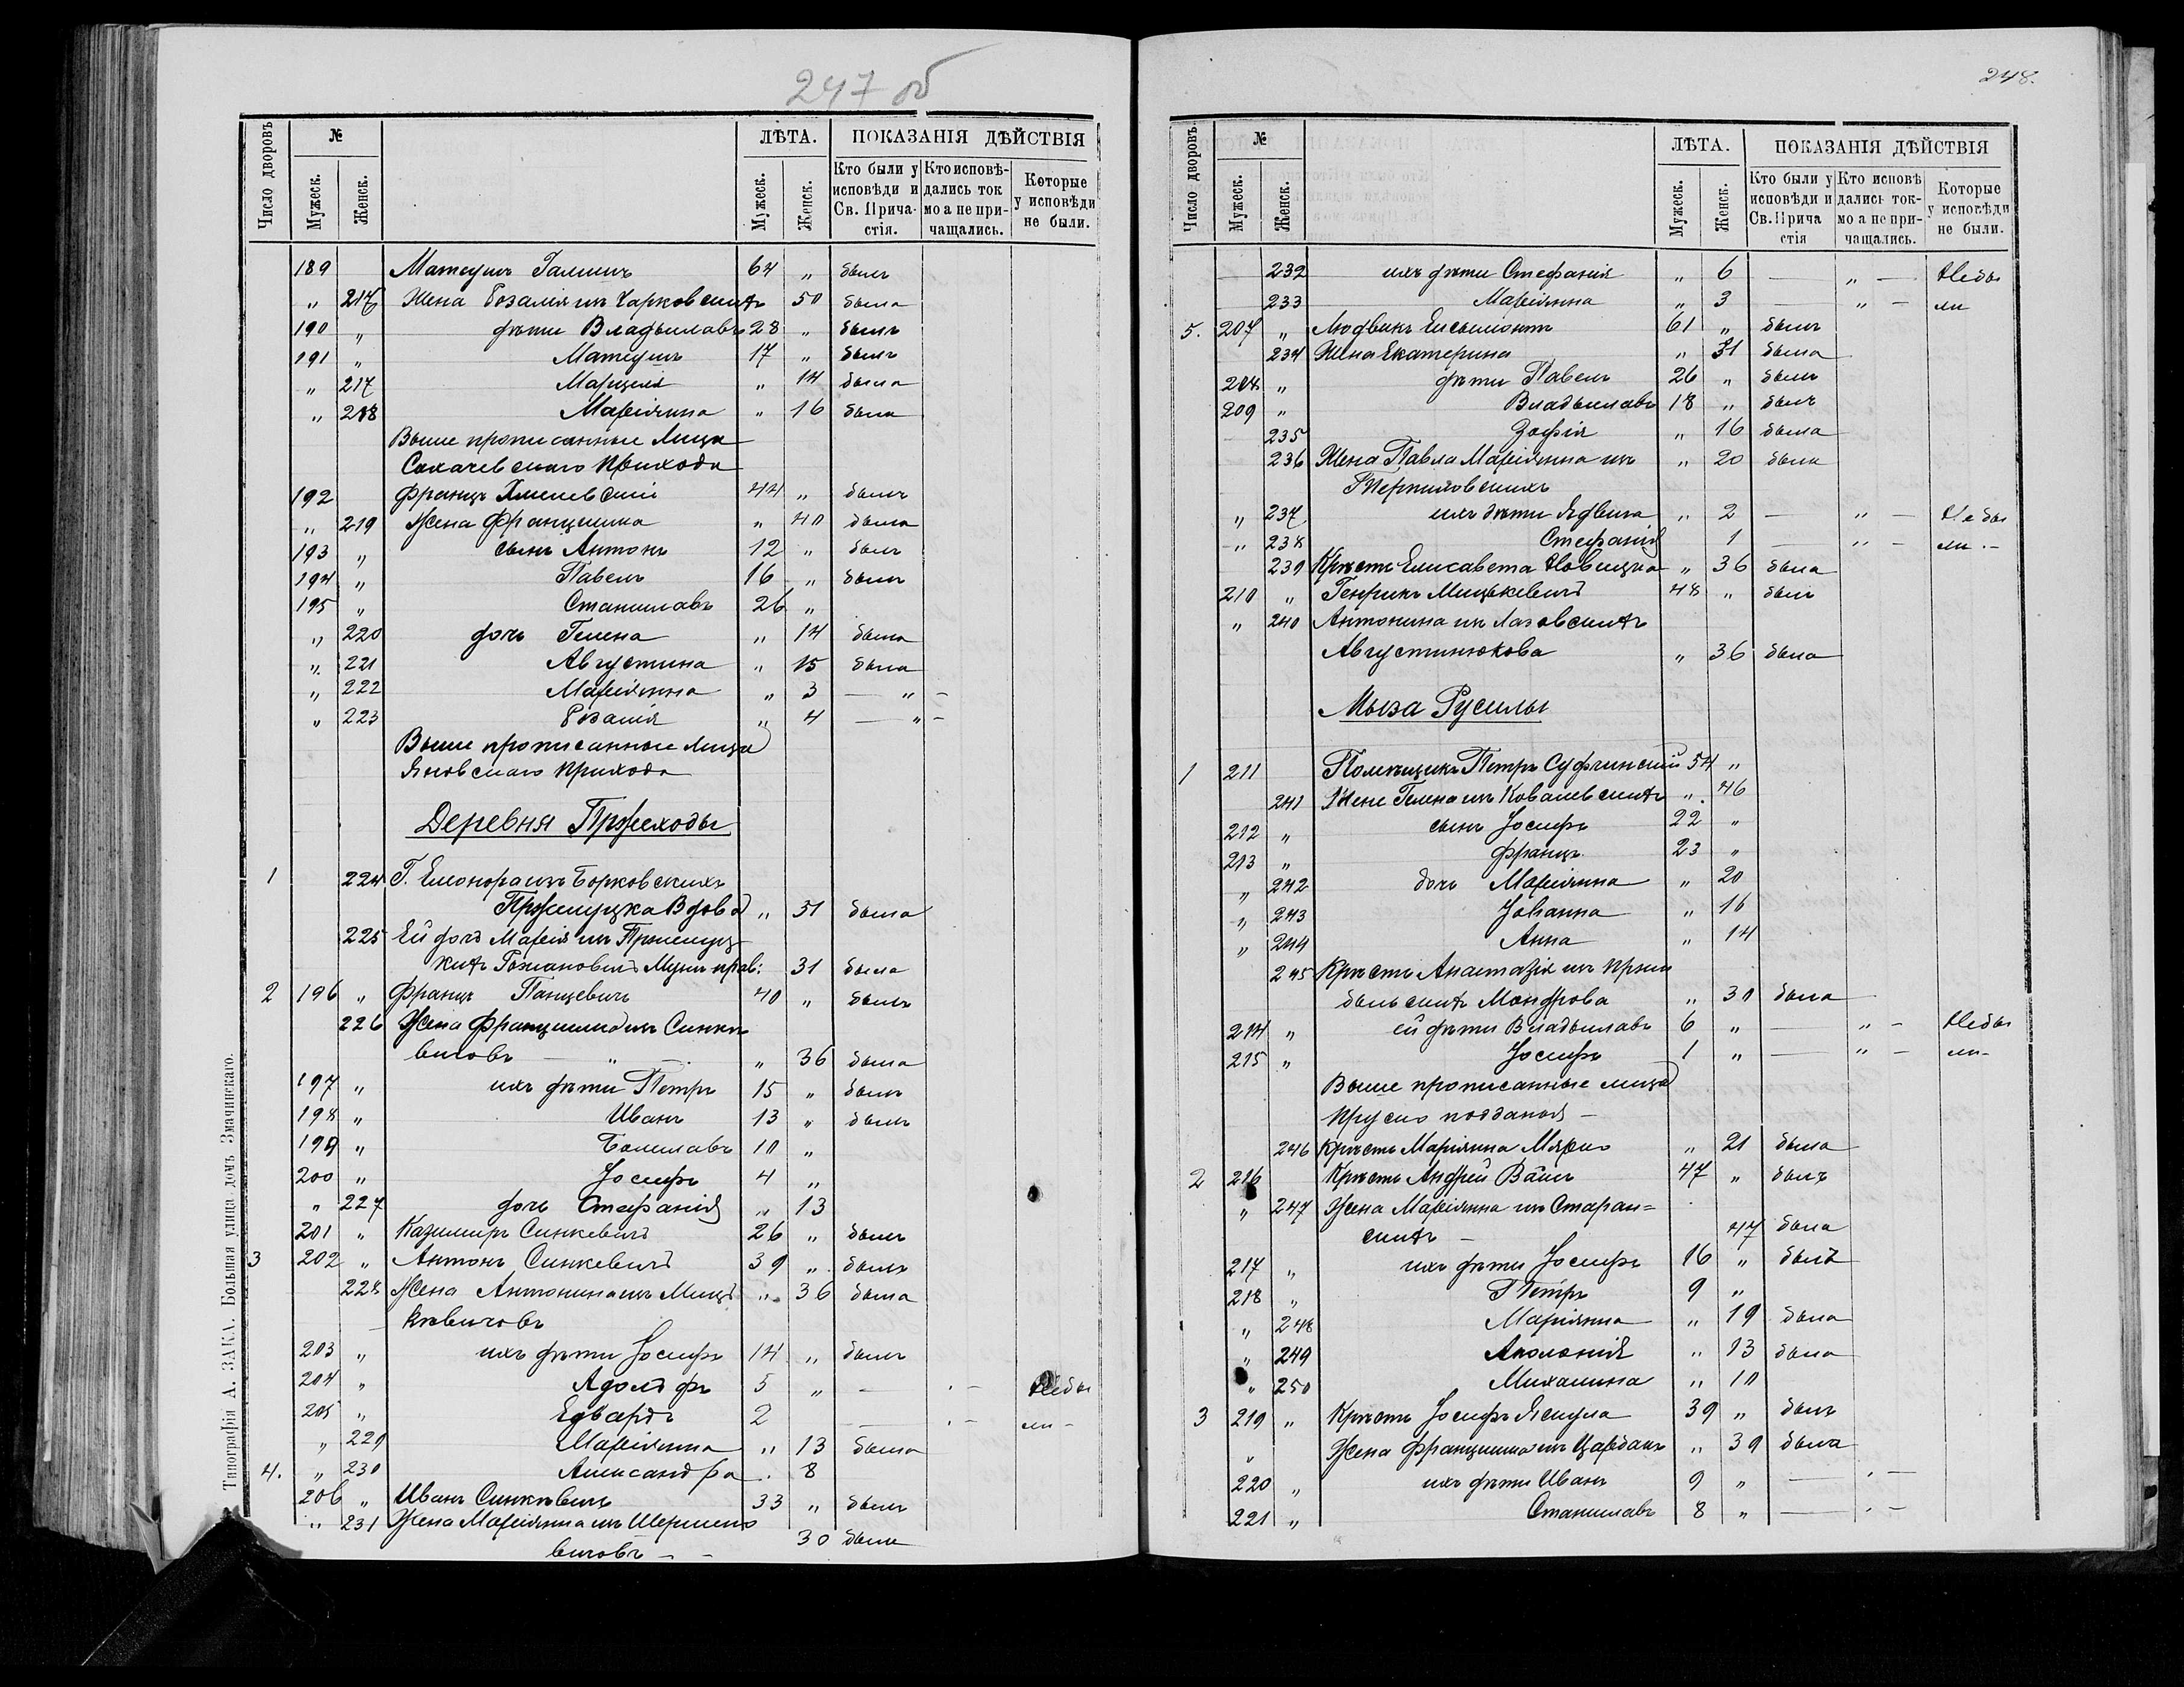 247 об
Число дворовъ
№
Мужеск.
Женск.
ЛѢТА.
Мужеск.
Женск.
ПОКАЗАНІЯ ДѢЙСТВІЯ
Кто были у исповѣди и Св. Прича-стія.
Кто исповѣ-дались ток мо а не при-чащались.
Которые у исповѣди не были.
189 Матеушъ 64 „ былъ
„ 216 Жена Розалія изъ Чарковскихъ 50 была
190 „ дѣти Владыславъ 28 „ былъ
191 „ Матеушъ 17 „ былъ
„ 217 Марцеля „ 14 была
„ 218 Маріянна „ 16 была
Выше прописанные лица
Сохачевскаго прихода
192 Францъ Хмелевскій 44 „ былъ
„ 219 Жена Францишка „ 40 была
193 „ сынъ Антонъ 12 „ былъ
194 „ Павелъ 16 „ былъ
195 „ Станиславъ 26 „
„ 220 дочь Гелена „ 14 была
„ 221 Августина „ 15 была
„ 222 Маріянна „ 3 — „ —
„ 223 Розалія „ 4 — „ —
Выше прописанные лица
Яновскаго прихода
Деревня Пржеходы
1 224 Г. Елеонора изъ Борковскихъ
Вдова „ 51 была
225 Ей дочь Марія изъ
31 была
2 196 „ Францъ Панцевичъ 40 „ былъ
226 Жена Францишка изъ Синке
вичовъ „ „ 36 была
197 „ ихъ дѣти Петръ 15 „ былъ
198 „ Иванъ 13 „ былъ
199 „ Болеславъ 10 „
200 „ Іосифъ 4 „
„ 227 дочь Стефанія „ 13
201 „ Казимиръ Синкевичъ 26 „ былъ
3 202 „ Антонъ Синкевичъ 39 „ былъ
228 Жена Антонина изъ Мицъ „ 36 была
кевичовъ
203 „ ихъ дѣти Іосифъ 14 „ былъ
204 „ Адольфъ 5 „ — - — Не бы
205 „ Едвардъ 2 — - — ли -
„ 229 Маріянна „ 13 была
4. „ 230 Александра . 8
206 „ Иванъ Синкевичъ 33 „ былъ
„ 231 Жена Маріянна изъ
вичовъ - - 30 была
Типографія А. ЗАКА. Большая улица домъ Змачинскаго.
248.
Число дворовъ.
№
Мужеск.
Женск.
ЛѢТА.
Мужеск.
Женск.
ПОКАЗАНІЯ ДѢЙСТВІЯ
Кто были у исповѣди и Св. Прича стія
Кто исповѣ дались ток-мо а не при-чащались.
Которые у исповѣди не были.
232 ихъ дѣти Стефанія „ 6 — „ — Не бы
233 Маріянна „ 3 — „ — ли
5. 207 „ Людвикъ 61 „ былъ
234 Жена Екатерина „ 51 была
208 „ дѣти Павелъ 26 „ былъ
209 „ Владыславъ 18 „ былъ
235 Зофія „ 16 была
236 Жена Павла Маріянна изъ „ 20 была
„ 237 ихъ дѣти Ядвига „ 2 — „ — Не бы
„ 238 Стефанія 1 — „ — ли -
239 Крѣстъ Елисавета Новицка „ 36 была
210 „ Генрикъ Мицкевичъ 48 „ былъ
„ 240 Антонина изъ Лазовскихъ
Августинюкова „ 36 была
Мыза Русилы
1 211 Помѣщикъ Петръ Суфчинскій 54 „
241 Жена Гелена изъ Ковалевскихъ „ 46
212 „ сынъ Іосифъ 22 „
213 „ Францъ 23 „
„ 242 дочь Маріянна „ 20
„ 243 Іоханна „ 16
„ 244 Анна „ 14
245 Крѣстъ Анастазія изъ
Мондрова „ 30 была
214 „ ей дѣти Владыславъ 6 „ — „ — Не бы
215 „ Іосифъ 1 „ — „ — ли -
Выше прописанные лица
Пруско подданыя —
246 Крѣстъ Маріянна „ 21 была
2 216 Крѣстъ Андрей 47 „ былъ
„ 247 Жена Маріянна изъ Старан=
скихъ — 47 была
217 „ ихъ дѣти Іосифъ 16 „ былъ
218 „ Петръ 9 „
„ 248 Маріянна „ 19 была
„ 249 Аполонія „ 13 была
„ 250 Михалина „ 10
3 219 „ Крѣстъ Іосифъ 39 „ былъ
„ Жена Францишка изъ „ 39 была
220 „ ихъ дѣти Иванъ 9 „ — - —
221 „ Станиславъ 8 „ — - —